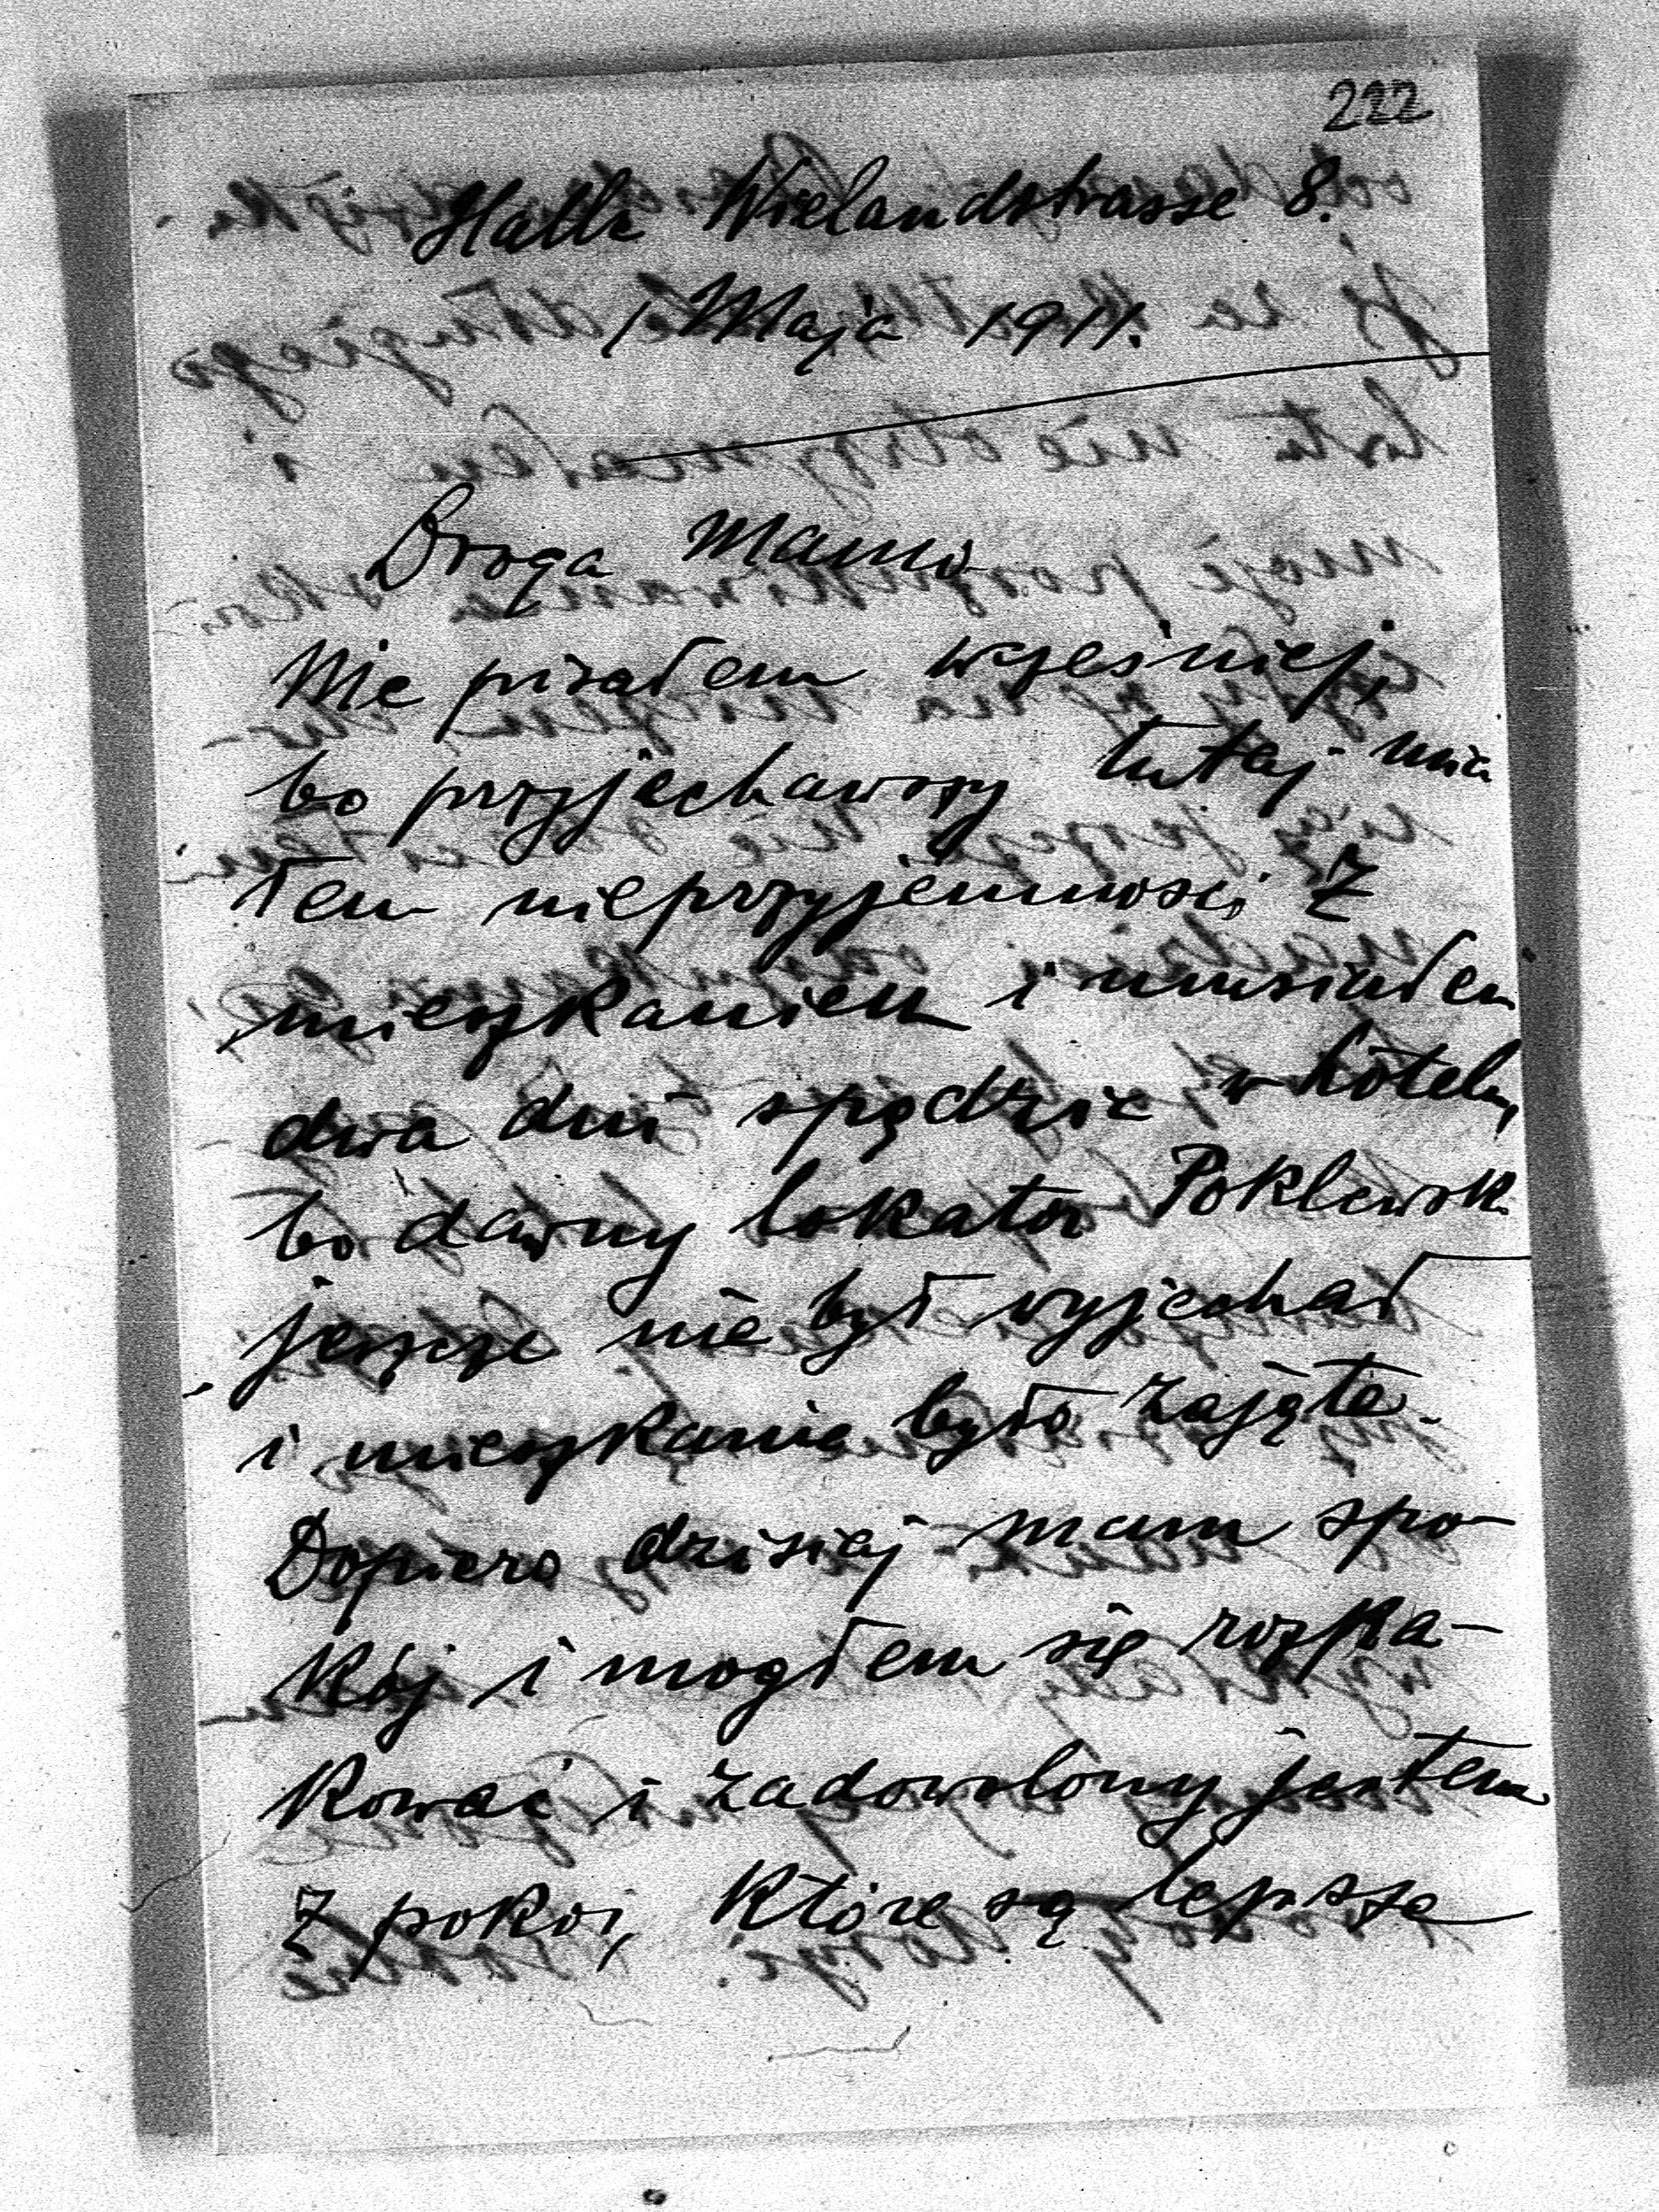 222
Halle Wielandstrasse 8.
1 Maja 1911.
Droga Mamo
Nie pisałem wcześniej,
bo przyjechawszy tutaj mia
łem nieprzyjemności z
mieszkaniem i musiałem
dwa dni spędzić w hotelu,
bo dawny lokator Poklewski
jeszcze nie był wyjechał
i mieszkanie było zajęte.
Dopiero dzisiaj mam spo-
kój i mogłem się rozpa-
kować i zadowolony jestem
z pokoi, które są lepsze